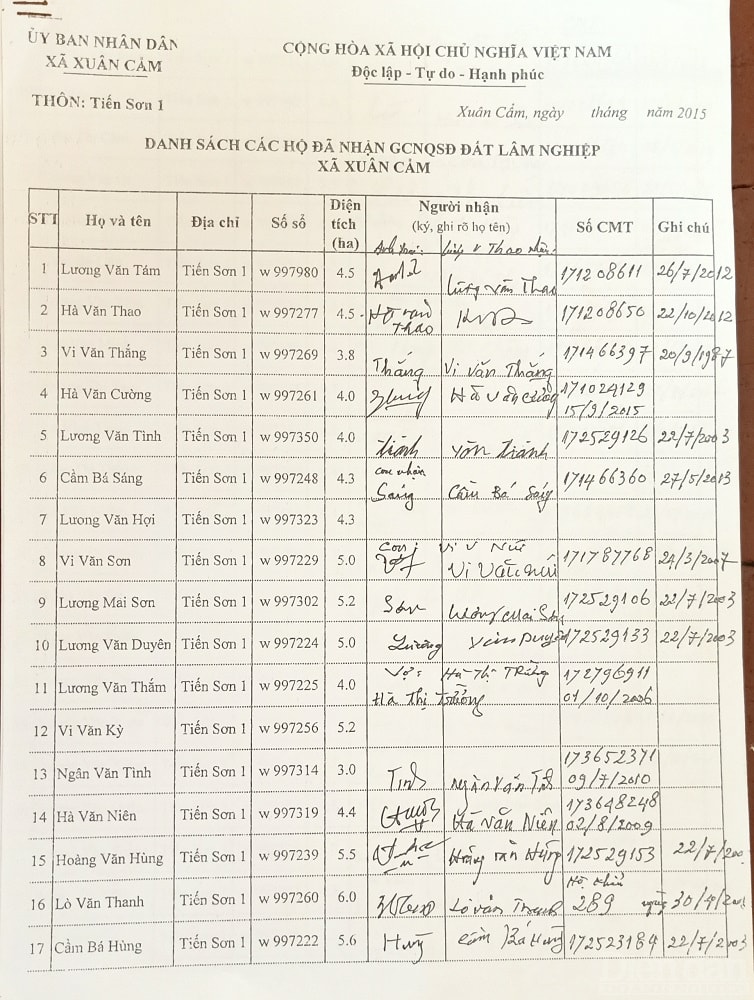 ỦY BAN NHÂN DÂN
XÃ XUÂN CẢM
CỘNG HÒA XÃ HỘI CHỦ NGHĨA VIỆT NAM
Độc lập - Tự do - Hạnh phúc
THÔN: Tiến Sơn 1
Xuân Cẩm, ngày tháng năm 2015
DANH SÁCH CÁC HỘ ĐÃ NHẬN GCNQSĐ ĐẤT LÂM NGHIỆP
XÃ XUÂN CẢM
STT Họ và tên Địa chỉ Số sổ Diện tích (ha) Người nhận (ký, ghi rõ họ tên) Số CMT Ghi chú
V Thao nhận
1 Lương Văn Tám Tiến Sơn 1 w 997980 4.5 văn Thao 171208611 26/7/2012
2 Hà Văn Thao Tiến Sơn 1 w 997277 4.5 Hà văn Thao 171208650 22/10/2012
3 Vi Văn Thắng Tiến Sơn 1 w 997269 3.8 Thắng Vi văn Thắng 171466397 20/9/1987
4 Hà Văn Cường Tiến Sơn 1 w 997261 4.0 Hà văn cường 171024129
15/9/2015
5 Lương Văn Tình Tiến Sơn 1 w 997350 4.0 văn 172529126 22/7/2003
6 Cầm Bá Sáng Tiến Sơn 1 w 997248 4.3 con nhận Sáng Cầm Bá Sáng 171466360 27/5/2013
7 Lương Văn Hợi Tiến Sơn 1 w 997323 4.3
8 Vi Văn Sơn Tiến Sơn 1 w 997229 5.0 con Vi V Núi
Vi Văn Núi 171787768 24/3/2007
9 Lương Mai Sơn Tiến Sơn 1 w 997302 5.2 Sơn Lương Mai Sơn 172529106 22/7/2003
10 Lương Văn Duyên Tiến Sơn 1 w 997224 5.0 Lương Văn Duyên 172529133 22/7/2003
11 Lương Văn Thắm Tiến Sơn 1 w 997225 4.0 Vợ: Hà Thị 172796911
Hà Thị 01/10/2006
12 Vi Văn Kỳ Tiến Sơn 1 w 997256 5.2
13 Ngân Văn Tình Tiến Sơn 1 w 997314 3.0 Tình Ngân văn Tình 173652371
09/7/2010
14 Hà Văn Niên Tiến Sơn 1 w 997319 4.4 Hà văn Niên 173648248
02/8/2009
15 Hoàng Văn Hùng Tiến Sơn 1 w 997239 5.5 Hoàng văn Hùng 172529153 22/7/200
16 Lò Văn Thanh Tiến Sơn 1 w 997260 6.0 Lò văn Thanh Hộ khẩu
289 ngày 30/4/
17 Cầm Bá Hùng Tiến Sơn 1 w 997222 5.6 Hùng Cầm Bá Hùng 172523184 22/7/2003